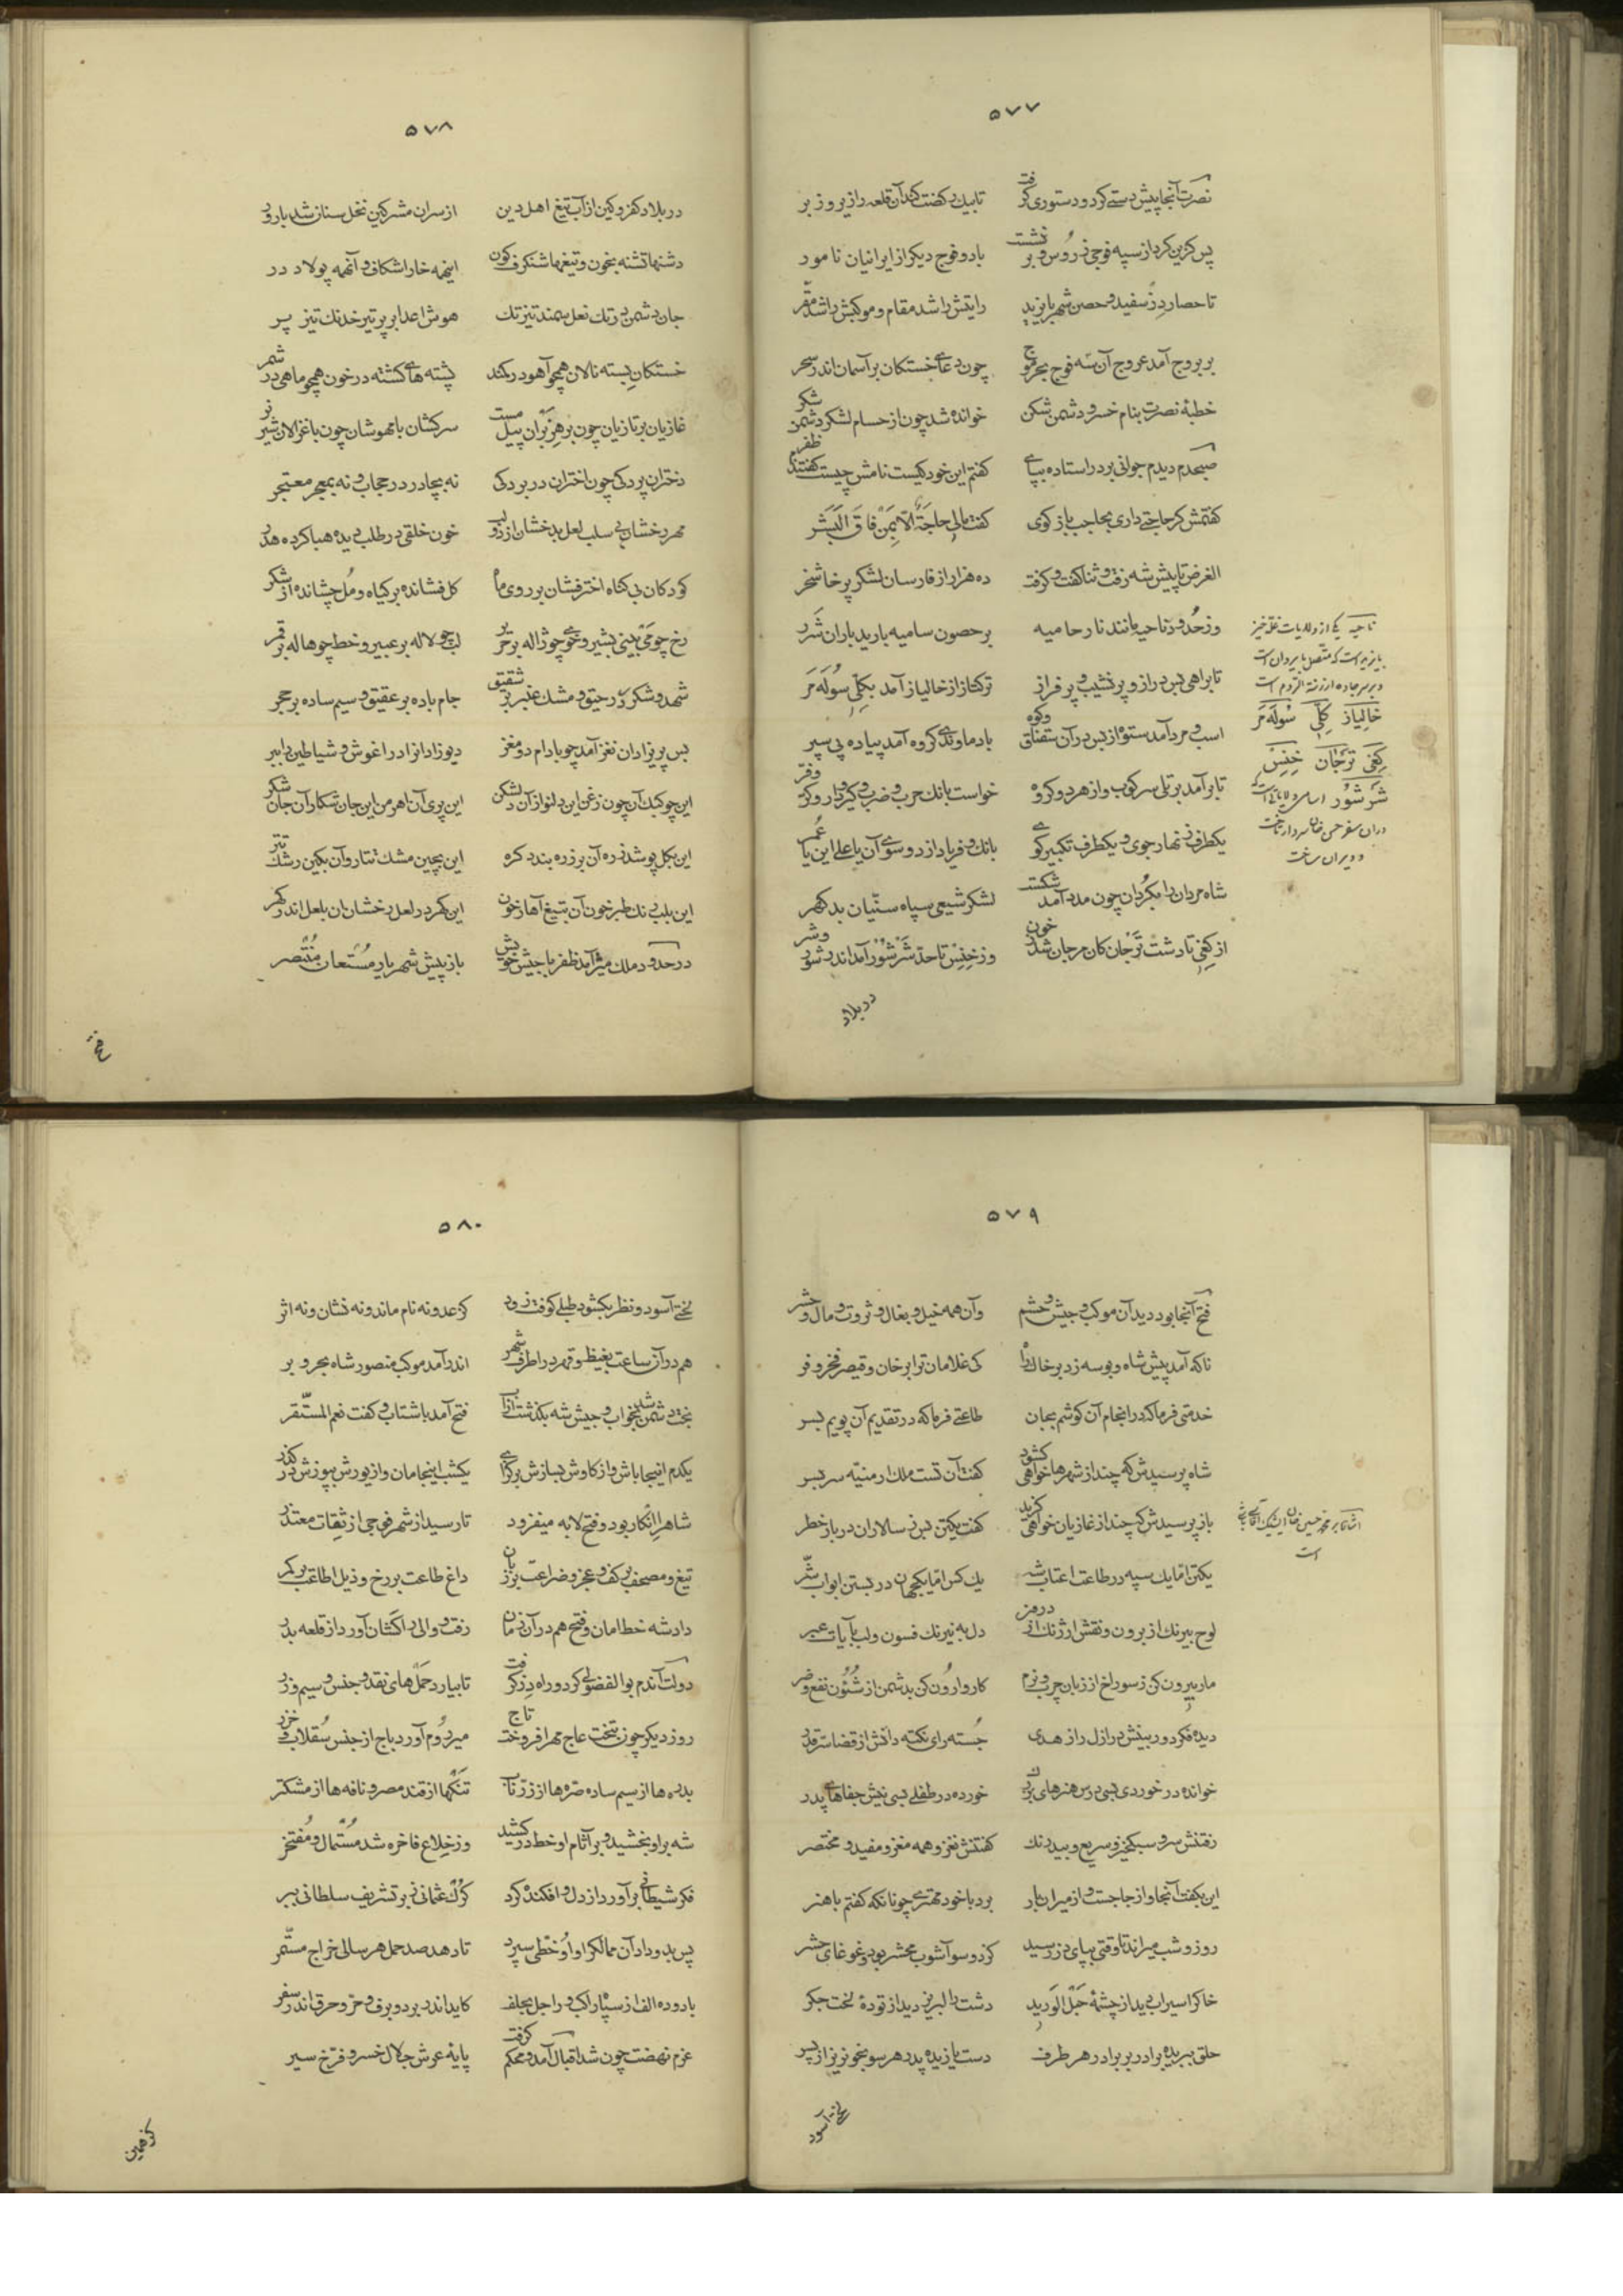 ۵۷۷
نصرت آنجا پیش دستی کرد و دستوری گرفت تا بیک رکضت کند آن قلعه را زیر و زبر
پس گزین کرد از سپه فوجی ز روس و بر نشست با دو فوج دیگر از ایرانیان نامور
تا حصار دز سفید و حصن شهر بایزید رایتش را شد مقام و موکبش را شد مقر
بر بروج آمد عروج آن سه فوج بحر موج چون دعای خستکان بر آسمان اندر سحر
خطبهٔ نصرت بنام خسرو دشمن شکن خوانده شد چون از حسام لشکر دشمن شکر
صبحدم دیدم جوانی بر در استاده بپای گفتم این خود کیست نامش چیست گفتند ظفر
گفتمش گر حاجتی داری بحاجب باز گوی گفت مالی حاجة الا بمن فاق البشر
الغرض تا پیش شه رفت و ثنا گفت و گرفت ده هزار از فارسان لشکر پرخاشخر
وز حدود ناحیه مانند نار حامیه بر حصون سامیه بارید باران شرر
تا براهی بس دراز و پر نشیب و پر فراز ترکتاز از خالیاز آمد بکلی سوله مر
اسب و مرد آمد ستوه از بس در آن سقناق و کوه باد ماوندی گروه آمد پیاده پی سپر
تا بر آمد بر تلی سرکوب و از هر دو گروه خواست بانک حرب و ضرب و گیر و دار و کر و فر
یکطرف زنهار جوی و یکطرف تکبیر گوی بانک و فریاد از دو سوی آن یا علی این یا عمر
شاه مردان را بگردان چون مدد آمد شکست لشکر شیعی سپاه سنیان بد گهر
از کغی تا دشت ترجان کان مرجان شد ز خون وز خنس تا حد شرشور آمد اندر شور و شر
ناحیه یکی از ولایات غله خیز
بایزید است که متصل بایروان است
و بر سر جاده ارزنة الروم است
خالیاز کلی سوله مر
کغی ترجان خنس
شرشور اسامی ولایاتی است که
در آن سفر حسن خان سردار تاخت
و ویران ساخت
در بلاد
۵۷۸
در بلاد کفر و کین از آب تیغ اهل دین از سران مشرکین نخل سنان شد بارور
دشنها تشنه بخون و تیغها شنگرف گون اینهمه خارا شکاف و آنهمه پولاد در
جان دشمن در تک نعل سمند تیز تک هوش اعدا بر پر تیر خدنک تیز پر
خستکان بسته نالان همچو آهو در کمند پشته های کشته در خون همچو ماهی در شمر
غازیان بر تازیان چون بر هزبران پیل مست سرکشان با مهوشان چون با غزالان شیر نر
دختران پردکی چون اختران در بردکی نه بچادر در حجاب و نه بمعجر معتجر
مهر رخشان بی سلب لعل بدخشان از دو لب خون خلقی در طلب دیده هبا کرده هدر
کودکان بی گناه اختر فشان بر روی ماه گل فشانده بر گیاه و مل چشانده از شکر
رخ چو می بینی بشیر و خوی چو ژاله بر حریر لب چو لاله بر عبیر و خط چو هاله بر قمر
شهد و شکر در رحیق و مشک و عنبر بر شقیق جام باده بر عقیق و سیم ساده بر حجر
بس پریزادان نغز آمد چو بادام دو مغز دیو زادان را در آغوش و شیاطین را ببر
این چو کبک آن چون زغن این دلنواز آن دلشکن این پری آن اهرمن این جان شکار آن جان شکر
این بگل پوشد زره آن بر زره بندد گره این بچین مشک تتار و آن بکین رشک تتر
این بلب رنک طبر خون آن بتیغ آهار خون این گهر در لعل رخشان آن بلعل اندر گهر
در حدود ملک میر آمد ظفر با جیش خویش باز پیش شهریار مستعان منتصر
فتح
۵۷۹
فتح آنجا بود دید آن موکب و جیش و حشم و آن همه خیل و بغال و ثروت و مال و حشر
ناکه آمد پیش شاه و بوسه زد بر خاک راه کی غلامان ترا بر خان و قیصر فخر و فر
خدمتی فرما که در انجام آن کوشم بجان طاعتی فرما که در تقدیم آن پویم بسر
شاه پرسیدش که چند از شهرها خواهی گشود گفت آن تست ملک ارمنیه سر بسر
باز پرسیدش که چند از غازیان خواهی گزید گفت یکتن بس ز سالاران درباز خطر
یکتن اما یک سپه در طاعت اعتاب شه یک کس اما یکجهان در بستن ابواب شر
لوح بیرنک از برون و نقش ارژنک از درون دل به نیرنک فسون و لب بآیات عبر
مار بیرون کن ز سوراخ از زبان چرب و نرم کار وارون کن بدشمن از شئون نفع و ضر
دیده فکر دوربینش در ازل راز هدی جسته رای نکته دانش از قضا سر قدر
خوانده در خوردی بسی درس هنرهای بزرک خورده در طفلی بسی نیش جفاهای پدر
رفتنش سرو سبکخیز و سریع و بیدرنک گفتنش نغز و همه مغز و مفید و مختصر
این بگفت آنجا و از جا جست و از میران بار برد با خود مهتری چونانکه گفتم با هنر
روز و شب میراند تا وقتی بپای دز رسید کز دو سو آشوب محشر بود و غوغای حشر
خاک را سیراب دید از چشمهٔ حبل الورید دشت را لبریز دید از تودهٔ لخت جگر
حلق ببریده برادر بر برادر هر طرف دست یازیده پدر هر سو بخونریز از پسر
اشاره بر محمد حسین خان ایشیک آقاسی باشی
است
لختی آسود
۵۸۰
لختی آسود و نظر بگشود طبلی کوفت زود کز عدو نه نام ماند و نه نشان و نه اثر
هم در آن ساعت بغیظ و قهر در اطراف شهر اندر آمد موکب منصور شاه بحر و بر
بخت دشمن شد بخواب و جیش شه بگذشت از آب فتح آمد با شتاب و گفت نعم المستقر
یکدم اینجا باش و از کاوش بسازش بر گرای یکشب اینجا مان و از یورش بپوزش در گذر
شاه را انکار بود و فتح لابه میفزود تا رسید از شهر فوجی از ثقات معتذر
تیغ و مصحف بر کف و عجز و ضراعت بر زبان داغ طاعت بر رخ و ذیل اطاعت بر کمر
داد شه خط امان و فتح هم در آن زمان رفت و والی را کشان آورد از قلعه بدر
دولت آندم بوالفضولی کرد و راه دز گرفت تا بیارد حمل های نقد و جنس و سیم و زر
روز دیگر چون بتخت عاج مهر افروخت تاج میر روم آورد باج از جنس سقلاب و خزر
بدره ها از سیم ساده صره ها از زر ناب تنگها از قند مصر و نافه ها از مشک تر
شه بر او بخشید و بر آثام او خط در کشید وز خلاع فاخره شد مستمال و مفتخر
فکر شیطانی بر آورد از دل و افکنده کرد کرک عثمانی ز بر تشریف سلطانی ببر
پس بدو داد آن ممالک را و او خطی سپرد تا دهد صد حمل هر سالی خراج مستمر
با دو ده الف از سپاه راکب و راجل بجلف کاید اندر برد و برف و حر و حرق اندر سفر
عزم نهضت چون شد اقبال آمد و محکم گرفت پایهٔ عرش جلال خسرو فرخ سیر
کز همین